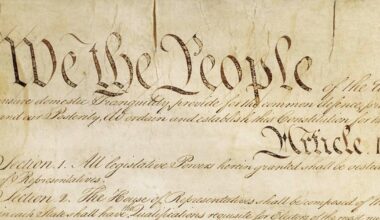 We the People of the
insure domestic Tranquility, provide for the common defence,
and our Posterity, do ordain and establish this Constitution for
Article I
Section 1. All legislative Powers herein granted shall be vested
of Representatives.
Section 2. The House of Representatives shall be composed of
in each State shall have the Qualifications requisite for Electors of the most